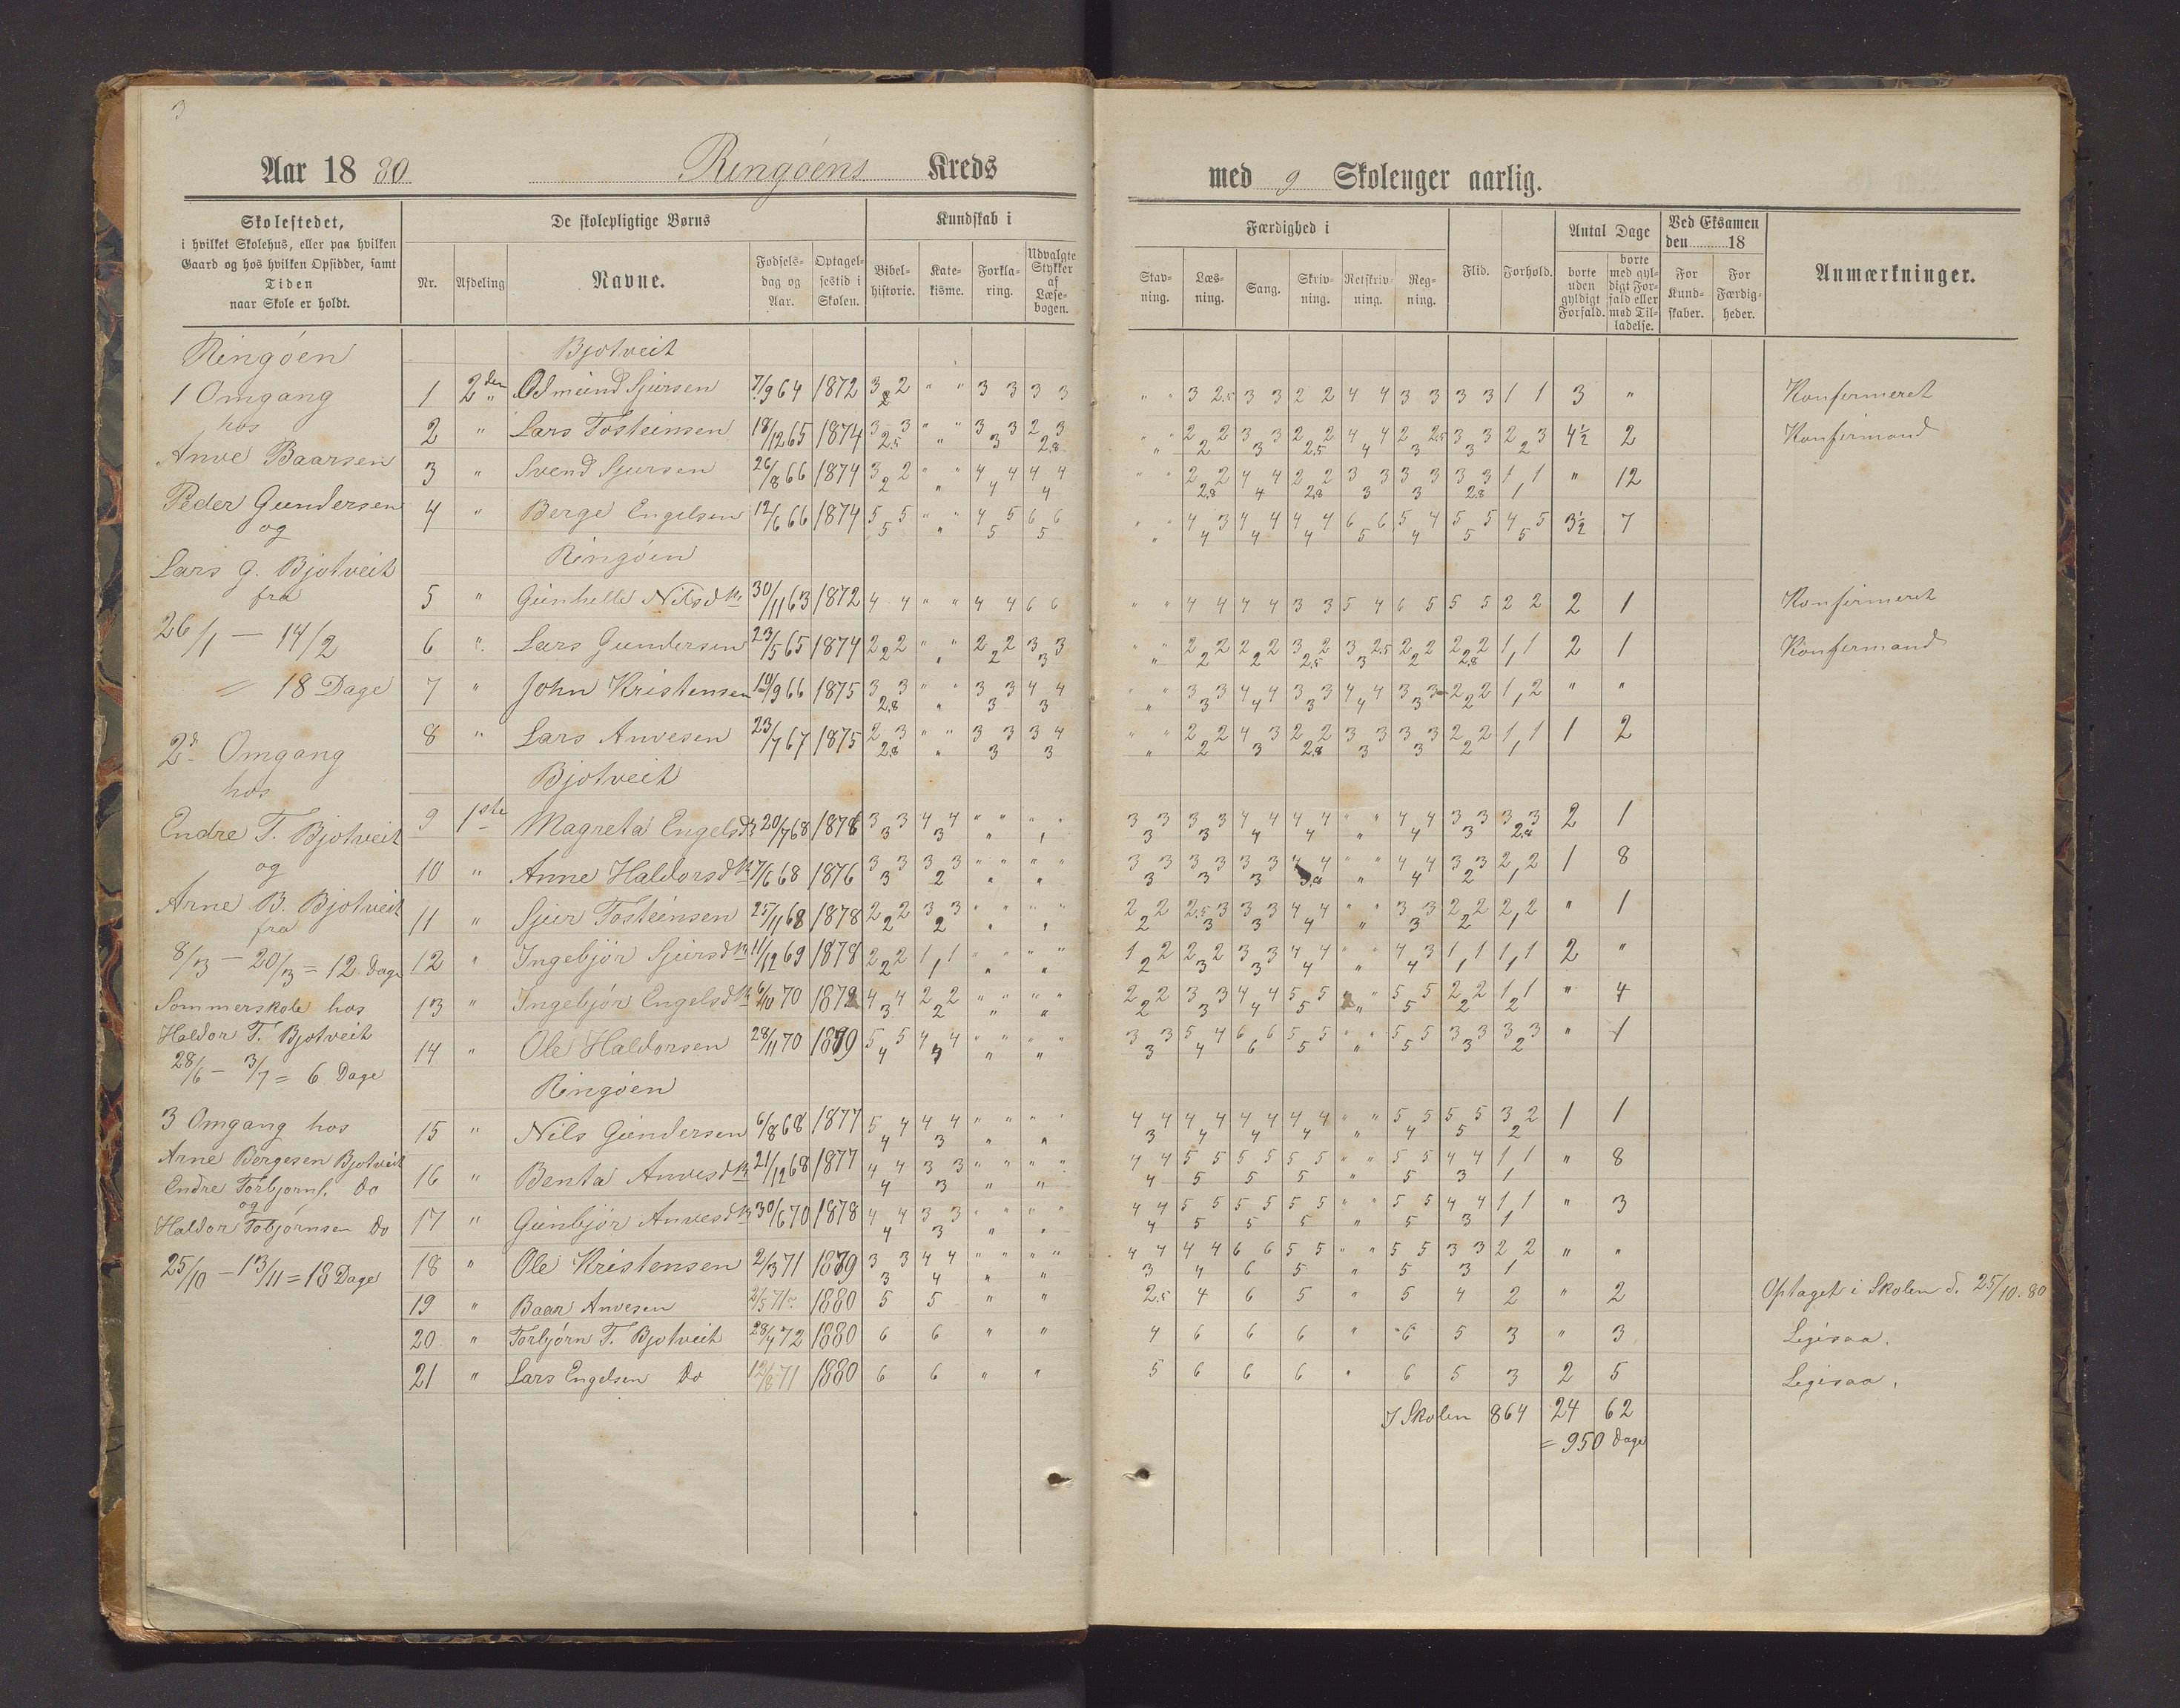 3
Aar 18 80 Ringøens Kreds med 9 Skoleuger aarlig.
Skolestedet,
i hvilket Skolehus, eller paa hvilken
Gaard og hos hvilken Opsidder, samt
Tiden
naar Skole er holdt.
De skolepligtige Børns
Nr. Afdeling Navne. Fødsels-dag og Aar. Optagel-sestid i Skolen.
Kundskab i
Bibel-historie. Kate-kisme. Forkla-ring. Udvalgte Stykker af Læse-bogen.
Færdighed i
Stav-ning. Læs-ning. Sang. Skriv-ning. Retskriv-ning. Reg-ning.
Flid. Forhold.
Antal Dage
borte uden gyldigt Forfald. borte med gyl-digt For-fald eller med Til-ladelse.
Ved Eksamen den 18
For Kund-skaber. For Færdig-heder.
Anmærkninger.
Ringøen
1 Omgang
hos
Anve Baarsen
Peder Gundersen
og
Lars G. Bjotveit
fra
26/1 — 14/2
= 18 Dage
2d Omgang
hos
Endre T. Bjotveit
og
Arne B. Bjotveit
fra
8/3 — 20/3 = 12 Dage
Sommerskole hos
Haldor T. Bjotveit
28/6 — 3/7 = 6 Dage
3 Omgang hos
Arne Børgesen Bjotveit
Endre Torbjørns. Do
og
Haldor Tobjørnsen Do
25/10 — 13/11 = 18 Dage
Bjotveit
1 2den Odmund Sjursen 7/9 64 1872 3 2 2 " " 3 3 3 3 " " 3 2.5 3 3 2 2 4 4 3 3 3 3 1 1 3 " Konfirmeret
2 " Lars Tosteinsen 18/12 65 1874 3 3 2.5 " " " 3 3 3 2 3 2.8 " " " 2 2 2 3 3 3 2 2 2.5 4 4 4 2 2.5 3 3 3 3 2 3 2 4½ 2 Konfirmand
3 " Svend Sjursen 26/8 66 1874 3 2 2 " " " 4 4 4 4 4 4 " " 2 2 2.8 4 4 4 2 2 2.8 3 3 3 3 3 3 3 3 2.8 1 1 1 " 12
4 " Berge Engelsen 12/6 66 1874 5 5 5 " " " 4 5 5 6 6 5 " " " 4 3 4 4 4 4 4 4 4 6 6 5 5 4 4 5 5 5 4 5 5 3½ 7
Ringøen
5 " Gunhelle Nilsdtr 30/11 63 1872 4 4 " " 4 4 6 6 " " 4 4 4 4 3 3 5 4 6 5 5 5 2 2 2 1 Konfirmeret
6 " Lars Gundersen 23/5 65 1874 2 2 2 " " " 2 2 2 3 3 3 " " " 2 2 2 2 2 2 3 2 2.5 3 2.5 3 2 2 2 2 2 2.8 1 1 1 2 1 Konfirmand
7 " John Kristensen 19/9 66 1875 3 3 2.8 " " " 3 3 3 4 4 3 " " " 3 3 3 4 4 4 3 3 3 4 4 4 3 3 3 2 2 2 1 2 1 " "
8 " Lars Anvesen 23/7 67 1875 2 3 2.8 " " " 3 3 3 3 4 3 " " " 2 2 2 4 3 3 2 2 2.8 3 3 3 3 3 3 2 2 2 1 1 1 1 2
Bjotveit
9 1ste Magreta Engelsdtr 20/7 68 1876 3 3 3 4 4 3 " " " " " " 3 3 3 3 3 3 4 4 4 4 4 4 " " " 4 4 4 3 3 3 3 3 2.8 2 1
10 " Anne Haldorsdtr 7/6 68 1876 3 3 3 3 3 2 " " " " " " 3 3 3 3 3 3 3 3 3 4 4 " " " 4 4 4 3 3 2 2 2 1 1 8
11 " Sjur Tosteinsen 25/11 68 1878 2 2 2 3 3 2 " " " " " " 2 2 2 2.5 3 3 3 3 3 4 4 4 " " " 3 3 3 2 2 2 2 2 1 " 1
12 " Ingebjør Sjursdtr 11/12 69 1878 2 2 2 1 1 1 " " " " " " 1 2 2 2 2 3 3 3 3 4 4 4 " " " 4 3 4 1 1 1 1 1 1 2 "
13 " Ingebjør Engelsdtr 6/10 70 1878 4 4 3 2 2 2 " " " " " " 2 2 2 3 3 3 4 4 4 5 5 5 " " 5 5 5 2 2 2 1 1 2 " 4
14 " Ole Haldorsen 28/11 70 1879 5 5 4 4 4 4 " " " " " " 3 3 3 5 4 4 6 6 6 5 5 5 " " " 5 5 5 3 3 3 3 3 2 " 1
Ringøen
15 " Nils Gundersen 6/8 68 1877 5 4 4 4 4 3 " " " " " " 4 4 3 4 4 4 4 4 4 4 4 4 " " " 5 5 4 5 5 5 3 2 2 1 1
16 " Benta Anvesdtr 21/12 68 1877 4 4 4 3 3 3 " " " " " " 4 4 4 5 5 5 5 5 5 5 5 5 " " " 5 5 5 4 4 3 1 1 1 " 8
17 " Gunbjør Anvesdtr 30/6 70 1878 4 4 4 3 3 3 " " " " " " 4 4 4 5 5 5 5 5 5 5 5 5 " " " 5 5 5 4 4 3 1 1 1 " 3
18 " Ole Kristensen 2/3 71 1879 3 3 3 4 4 4 " " " " " " 4 4 3 4 4 4 6 6 6 5 5 5 " " " 5 5 5 3 3 3 2 2 1 " "
19 " Baar Anvesen 2/5 71 1880 5 5 " " 2.5 4 6 5 " 5 4 2 " 2 Optaget i Skolen d. 25/10.80
20 " Torbjørn T. Bjotveit 28/4 72 1880 6 6 " " 4 6 6 6 " 6 5 3 " 3 Ligesaa.
21 " Lars Engelsen Do 12/8 71 1880 6 6 " " 5 6 6 6 " 6 5 3 2 5 Ligesaa.
I Skolen 864 24 62
= 950 Dage